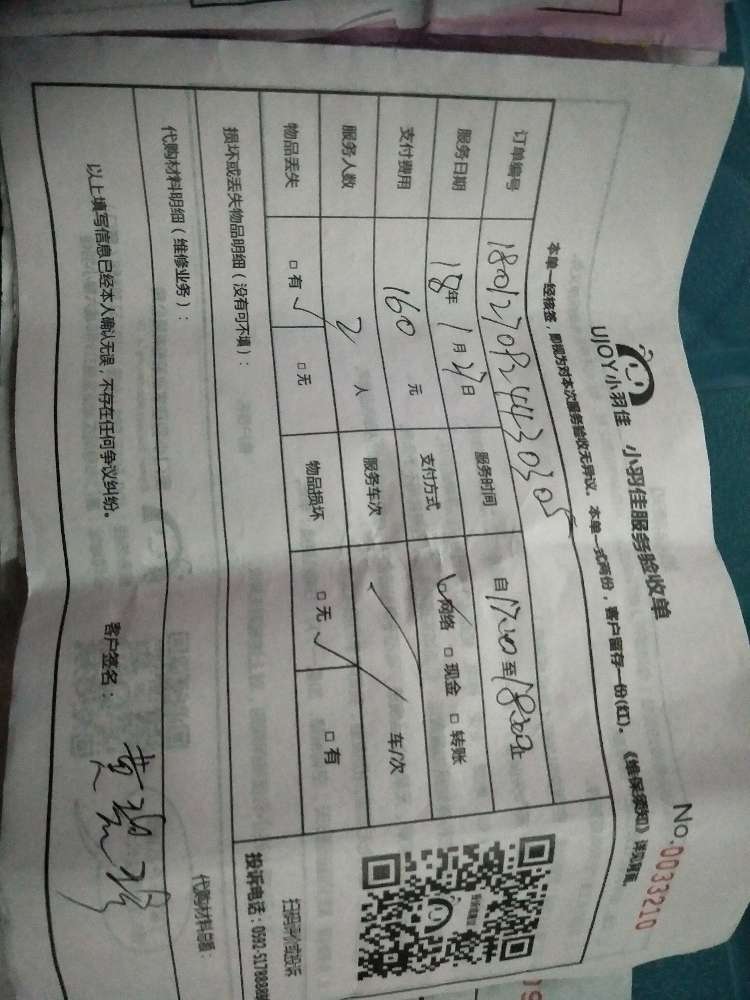 UJOY小羽佳 小羽佳服务验收单
No.0033210
本单一经核签，即视为对本次服务验收无异议。本单一式两份，客户留存一份(红)。《维保须知》详见背面。
订单编号
服务日期 18年 1月27日 服务时间 自17:30至18:30止
支付费用 160元 支付方式 ✓网络 □现金 □转账
服务人数 2人 服务车次 / 车/次
物品丢失 □有 ✓ □无 物品损坏 □无 ✓ □有
损坏或丢失物品明细（没有可不填）：
扫码评价或投诉
投诉电话：0592-5178888
代购材料明细（维修业务）：
代购材料总额：
以上填写信息已经本人确认无误，不存在任何争议纠纷。 客户签名：